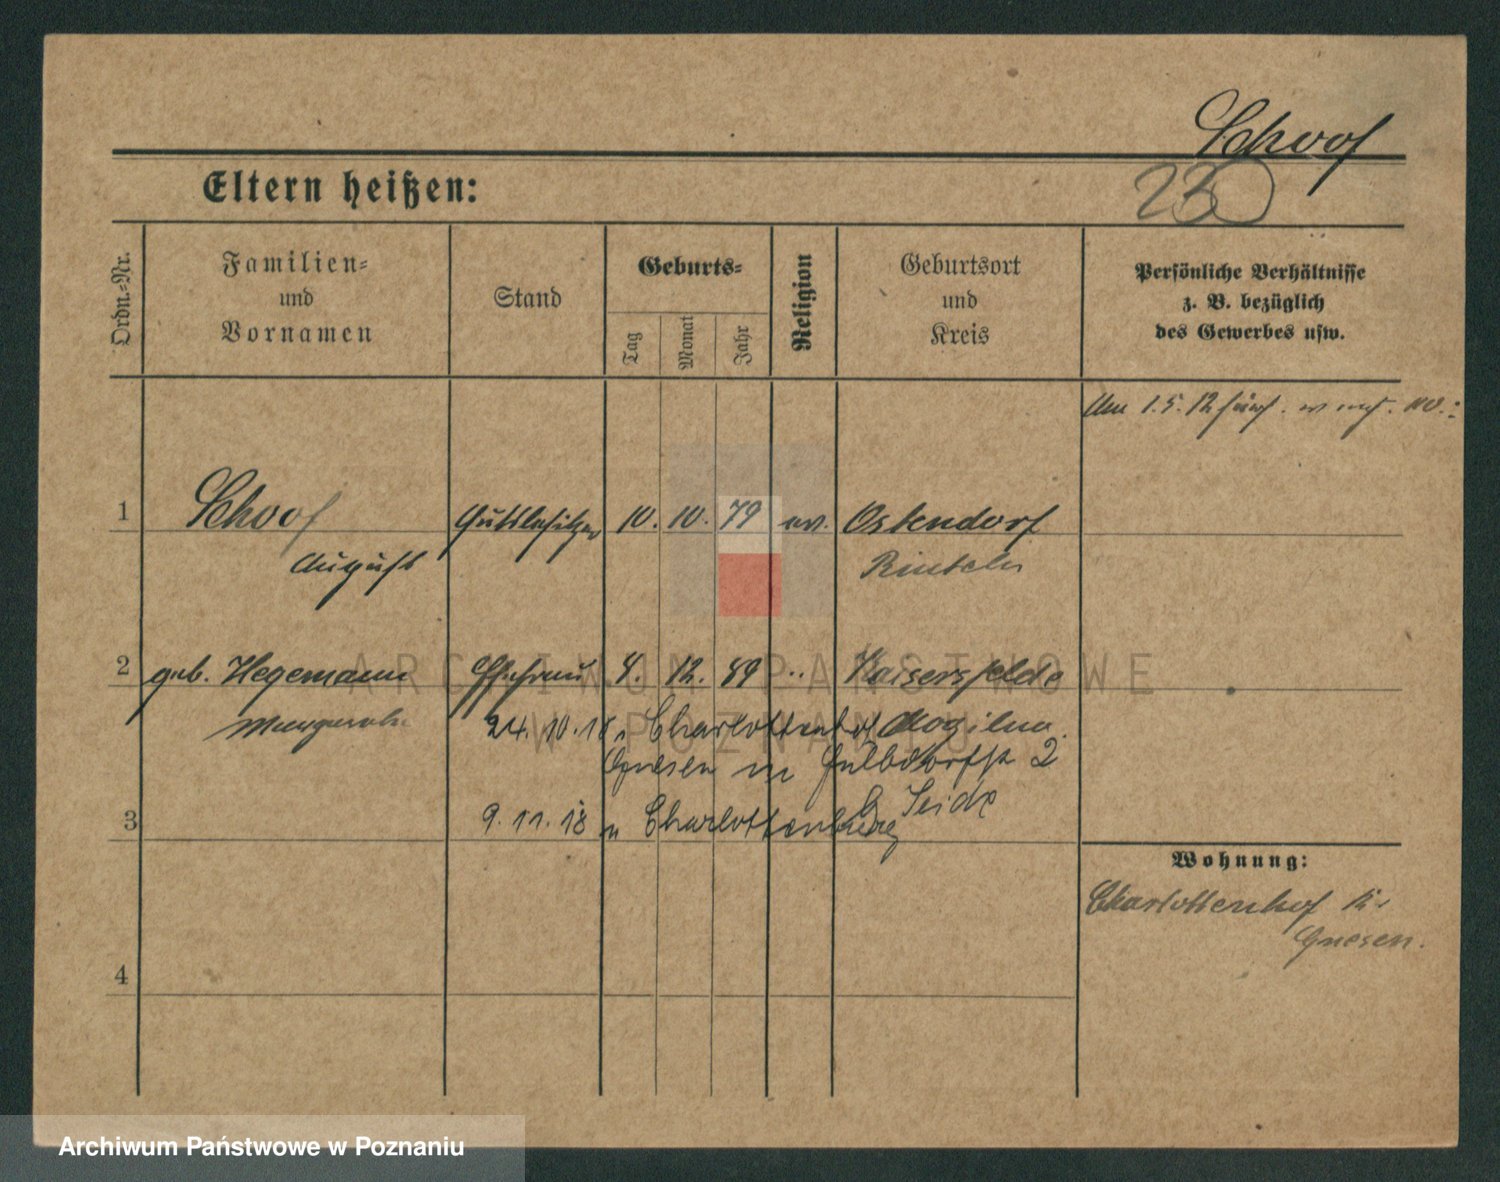 Schoof
230
Eltern heißen:
Ordn.-Nr.
Familien-
und
Vornamen
Stand
Geburts-
Tag
Monat
Jahr
Religion
Geburtsort
und
Kreis
Persönliche Verhältnisse
z. B. bezüglich
des Gewerbes usw.
Am 1.5.12
1 Schoof Gutsbesitzer 10. 10. 79 ev. Ostendorf
August Rinteln
2 geb. Hegemann Ehefrau 4. 12. 89 " Kaisersfelde
Margarete Mogilno.
24.10.18 n. Charlottenhof
Gnesen in 2
b. Seide
3 9.11.18 n Charlottenburg
Wohnung:
Charlottenhof Kr.
Gnesen.
4
ARCHIWUM PAŃSTWOWE
W POZNANIU
Archiwum Państwowe w Poznaniu